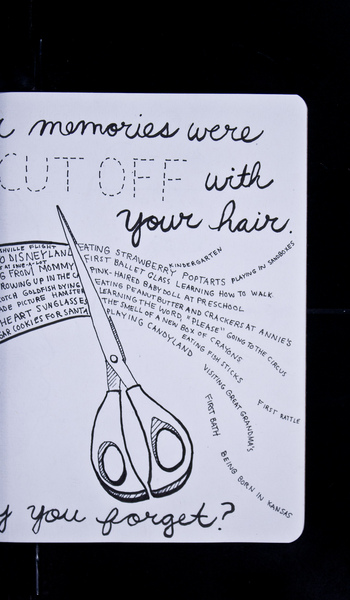 memories were
CUT OFF with
your hair.
HVILLE FLIGHT
O DISNEYLAND
G FROM MOMMY
ROWING UP IN THE C
OTCH GOLDFISH DYING
ADE PICTURE HAMSTER
HEART SUNGLASSES
AR COOKIES FOR SANTA
EATING STRAWBERRY POPTARTS
KINDERGARTEN
PLAYING IN SANDBOXES
FIRST BALLET CLASS LEARNING HOW TO WALK
PINK-HAIRED BABY DOLL AT PRESCHOOL
EATING PEANUT BUTTER AND CRACKERS AT ANNIE'S
LEARNING THE WORD "PLEASE" GOING TO THE CIRCUS
THE SMELL OF A NEW BOX OF CRAYONS
PLAYING CANDYLAND
EATING FISH STICKS
VISITING GREAT GRANDMA'S
FIRST RATTLE
FIRST BATH
BEING BORN IN KANSAS
y you forget?